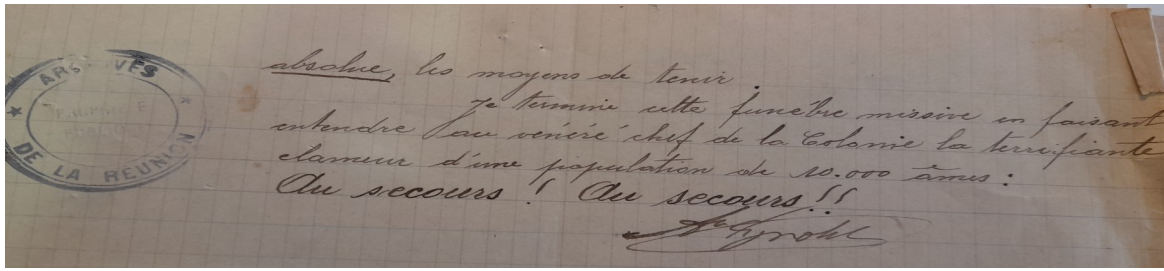 ARCHIVES
DE LA REUNION
absolue, les moyens de tenir.
Je termine cette funèbre missive en faisant
entendre au vénéré chef de la Colonie la terrifiante
clameur d'une population de 10.000 âmes :
Au secours ! Au secours !!